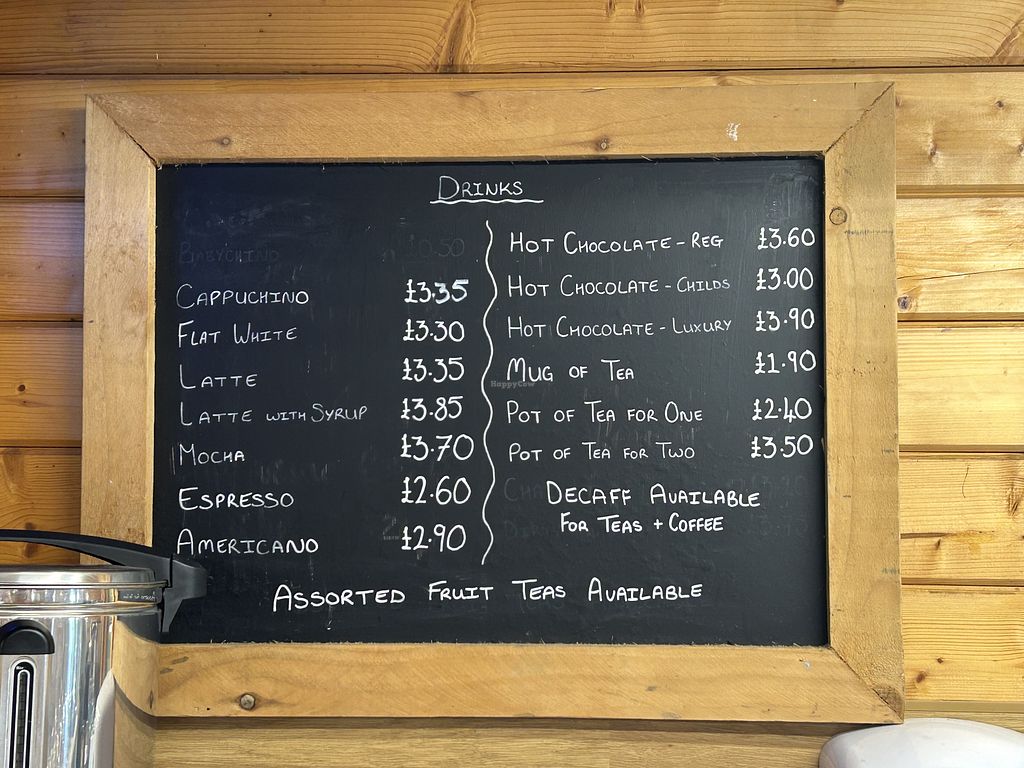 Drinks
Babychino £0.50
Cappuchino £3.35
Flat White £3.30
Latte £3.35
Latte with Syrup £3.85
Mocha £3.70
Espresso £2.60
Americano £2.90
Hot Chocolate - Reg £3.60
Hot Chocolate - Childs £3.00
Hot Chocolate - Luxury £3.90
Mug of Tea £1.90
Pot of Tea for One £2.40
Pot of Tea for Two £3.50
Decaff Available
For Teas + Coffee
Assorted Fruit Teas Available
HappyCow